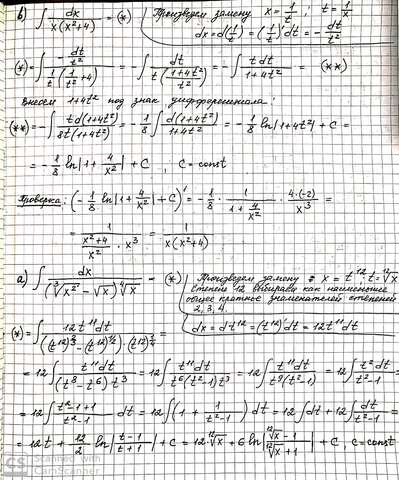 б) ∫ dx / x(x²+4) = (*) Произведем замену x = 1/t ; t = 1/x
dx = d(1/t) = (1/t)' dt = - dt/t²
(*) = ∫ (- dt/t²) / (1/t (1/t² + 4)) = - ∫ dt / (t (1+4t²)/t²) = - ∫ t dt / 1+4t² = (**)
Внесем 1+4t² под знак дифференциала:
(**) = - ∫ t d(1+4t²) / 8t(1+4t²) = - 1/8 ∫ d(1+4t²) / 1+4t² = - 1/8 ln|1+4t²| + C =
= - 1/8 ln|1 + 4/x²| + C , C = const
Проверка: (- 1/8 ln|1 + 4/x²| + C)' = - 1/8 · 1 / (1 + 4/x²) · 4·(-2) / x³ =
= 1 / ((x²+4)/x² · x³) = 1 / x(x²+4)
а) ∫ dx / (∛x² - √x) ∜x = (*) Произведем замену: x = t¹² ; t = ¹²√x
Степень 12 выбираем как наименьшее
общее кратное знаменателей степеней
2, 3, 4.
dx = dt¹² = (t¹²)' dt = 12t¹¹ dt
(*) = ∫ 12 t¹¹ dt / ((t¹²)^⅔ - (t¹²)^½) · (t¹²)^¼ =
= 12 ∫ t¹¹ dt / (t⁸ - t⁶) t³ = 12 ∫ t¹¹ dt / t⁶(t²-1) t³ = 12 ∫ t¹¹ dt / t⁹(t²-1) = 12 ∫ t² dt / t²-1 =
= 12 ∫ t²-1+1 / t²-1 dt = 12 ∫ (1 + 1/t²-1) dt = 12 ∫ dt + 12 ∫ dt / t²-1 =
= 12t + 12/2 ln|t-1 / t+1| + C = 12 · ¹²√x + 6 ln|¹²√x - 1 / ¹²√x + 1| + C, C = const
CS Scanned with
CamScanner